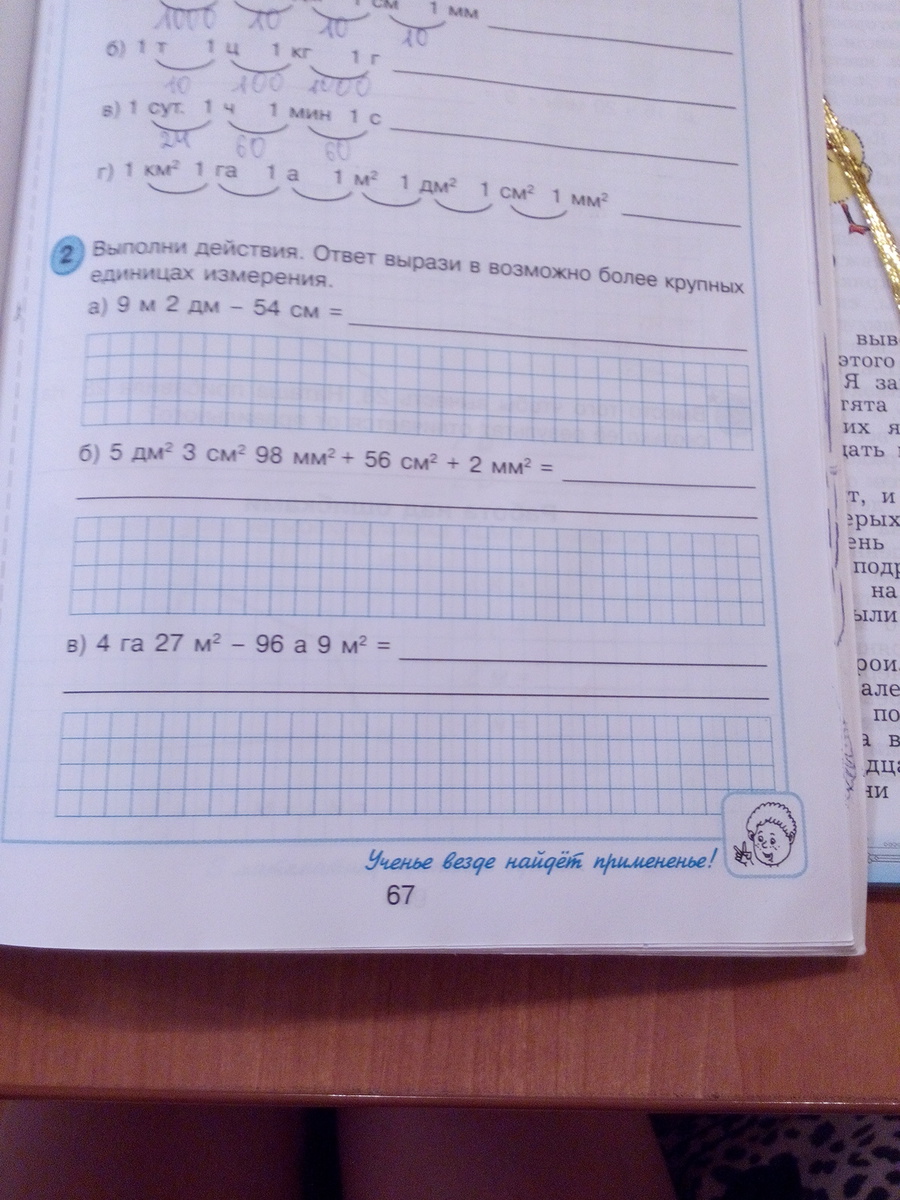 см 1 мм
1000 10 10 10
б) 1 т 1 ц 1 кг 1 г
10 100 1000
в) 1 сут. 1 ч 1 мин 1 с
24 60 60
г) 1 км² 1 га 1 а 1 м² 1 дм² 1 см² 1 мм²
2 Выполни действия. Ответ вырази в возможно более крупных
единицах измерения.
а) 9 м 2 дм – 54 см =
б) 5 дм² 3 см² 98 мм² + 56 см² + 2 мм² =
в) 4 га 27 м² – 96 а 9 м² =
Ученье везде найдёт примененье!
67
этого
Я за
их я
т, и
на
по